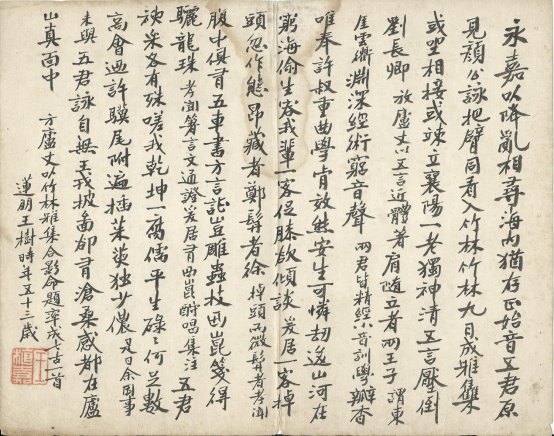 永嘉以降亂相尋海內猶存正始音五君原
見顏公詠把臂同看入竹林竹林九日成雅集
或坐相接或竦立襄陽一老獨神清五言壓倒
劉長卿 放廬丈以五言近體著 肩隨立者兩王子 謂東
厓雲衢 淵深經術窮音聲 兩君皆精經小音訓學 瓣香
唯奉許叔重曲學肯效熊安生可憐劫逐山河在
窮海偷生容我輩一客促膝欲傾談 炭居 一客掉
頭忽作態昂藏者鄭髯者徐 掉頭而微髯者孝淵
腹中俱有五車書方言詎豈雕蟲技西崑箋得
驪龍珠 孝淵箸言文通證炭居有西崑酬唱集注 五君
神采各有殊嗟我乾坤一腐儒平生碌碌何足數
高會過許驥尾附遍插茱萸獨少儂 是日余因事
未與 五君詠自無王戎披圖卻有滄桑感都在廬
山真面中 方廬丈以竹林雅集合影命題率成七古一首
蓮朋王樹時年五十三歲